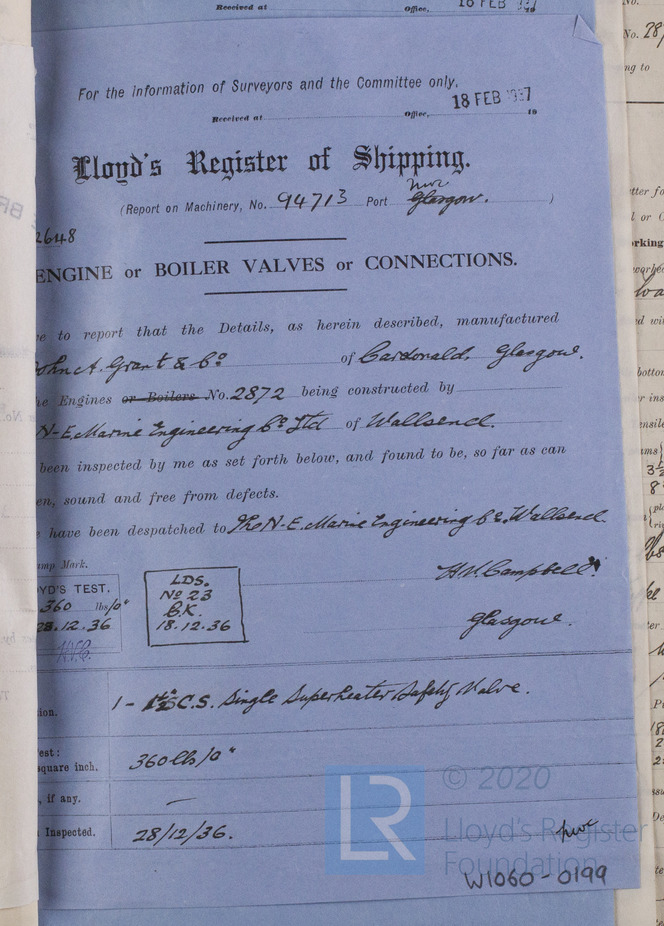 Received at
Office,
16 FEB 1937
19
For the Information of Surveyors and the Committee only,
18 FEB 1937
Received at
Office,
19
Lloyd's Register of Shipping.
(Report on Machinery, No. 94713 Port Glasgow. )
2648
ENGINE or BOILER VALVES or CONNECTIONS.
e to report that the Details, as herein described, manufactured
John A. Grant & Co of Cardonald, Glasgow.
e Engines or Boilers No. 2872 being constructed by
N-E. Marine Engineering Co. Ltd of Wallsend.
been inspected by me as set forth below, and found to be, so far as can
en, sound and free from defects.
have been despatched to The N-E. Marine Engineering Co. Wallsend.
mp Mark.
YD'S TEST.
360 lbs/□"
28.12.36
LDS.
No 23
18.12.36
H.V. Campbell.
Glasgow.
ion.
1 - 1½" C.S. Single Superheater Safety Valve.
est:
square inch.
360 lbs/□"
, if any.
—
Inspected.
28/12/36.
LR
© 2020
Lloyd's Register
Foundation
W1060-0199
No. 28
ng to
tter fo
l or C
rking
worked
d wi
bottom
r ins
ensile